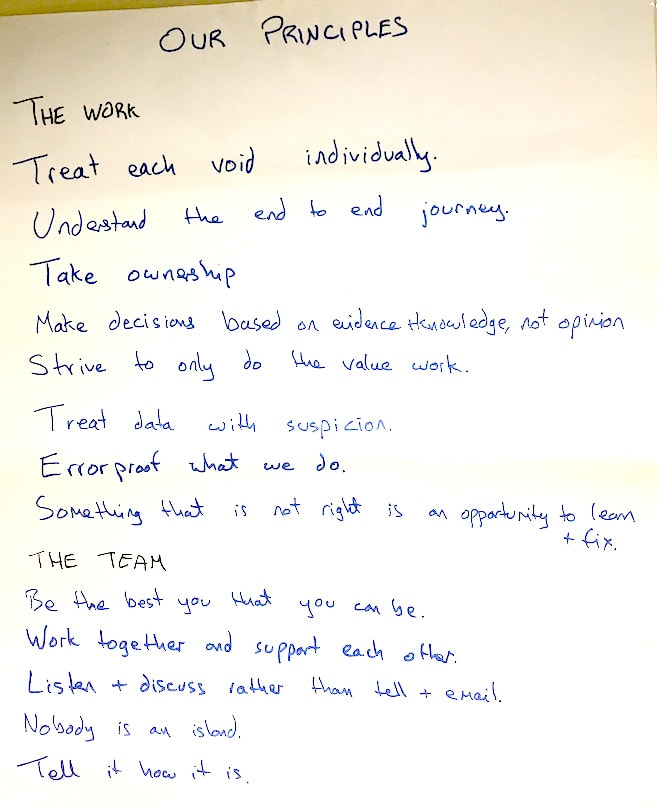 OUR PRINCIPLES
THE WORK
Treat each void individually.
Understand the end to end journey.
Take ownership
Make decisions based on evidence + knowledge, not opinion
Strive to only do the value work.
Treat data with suspicion.
Error proof what we do.
Something that is not right is an opportunity to learn
+ fix.
THE TEAM
Be the best you that you can be.
Work together and support each other.
Listen + discuss rather than tell + email.
Nobody is an island.
Tell it how it is.